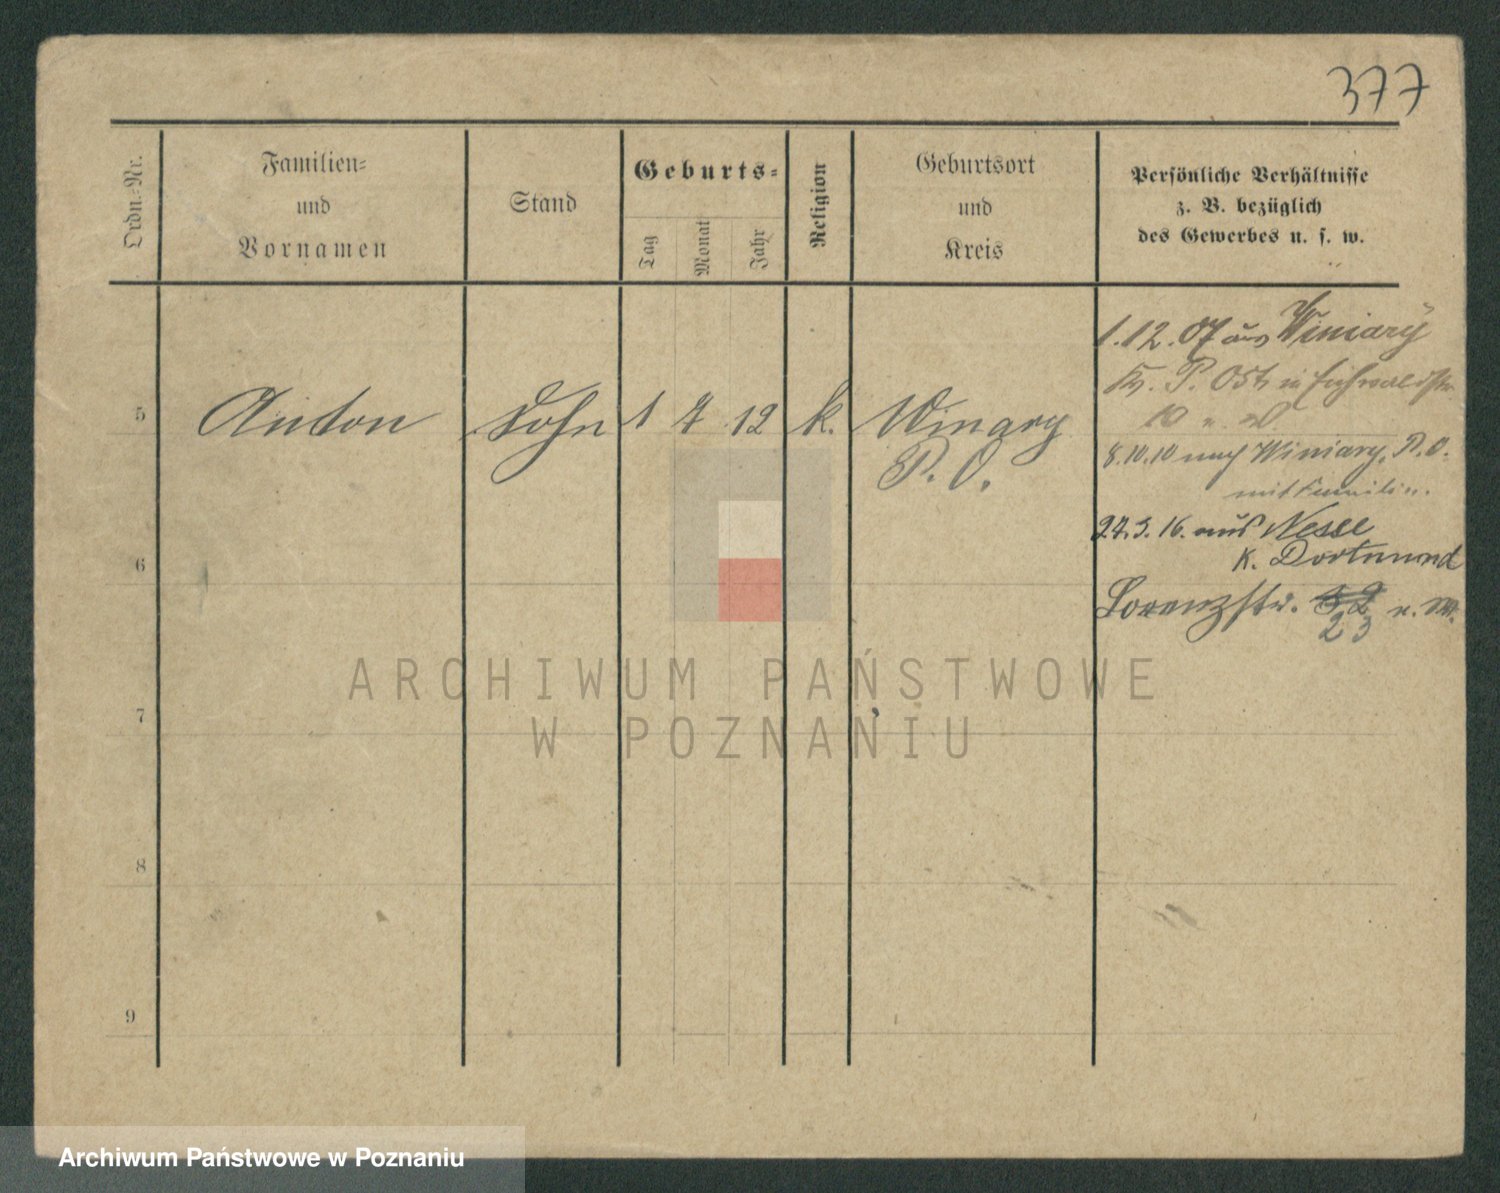 377
Ordn.-Nr.
Familien-
und
Vornamen
Stand
Geburts-
Tag
Monat
Jahr
Religion
Geburtsort
und
Kreis
Persönliche Verhältnisse
z. B. bezüglich
des Gewerbes u. s. w.
1.12.07 aus Winiary
Kr. P. Ost, in Eichwaldstr.
10
5 Anton Sohn 1 12 k. Winary
P. O.
8.10.10 nach Winiary, P. O.
mit Familie.
3. 16. aus
6
K. Dortmund
Lorenzstr. 52
23
7
8
9
ARCHIWUM PAŃSTWOWE
W POZNANIU
Archiwum Państwowe w Poznaniu